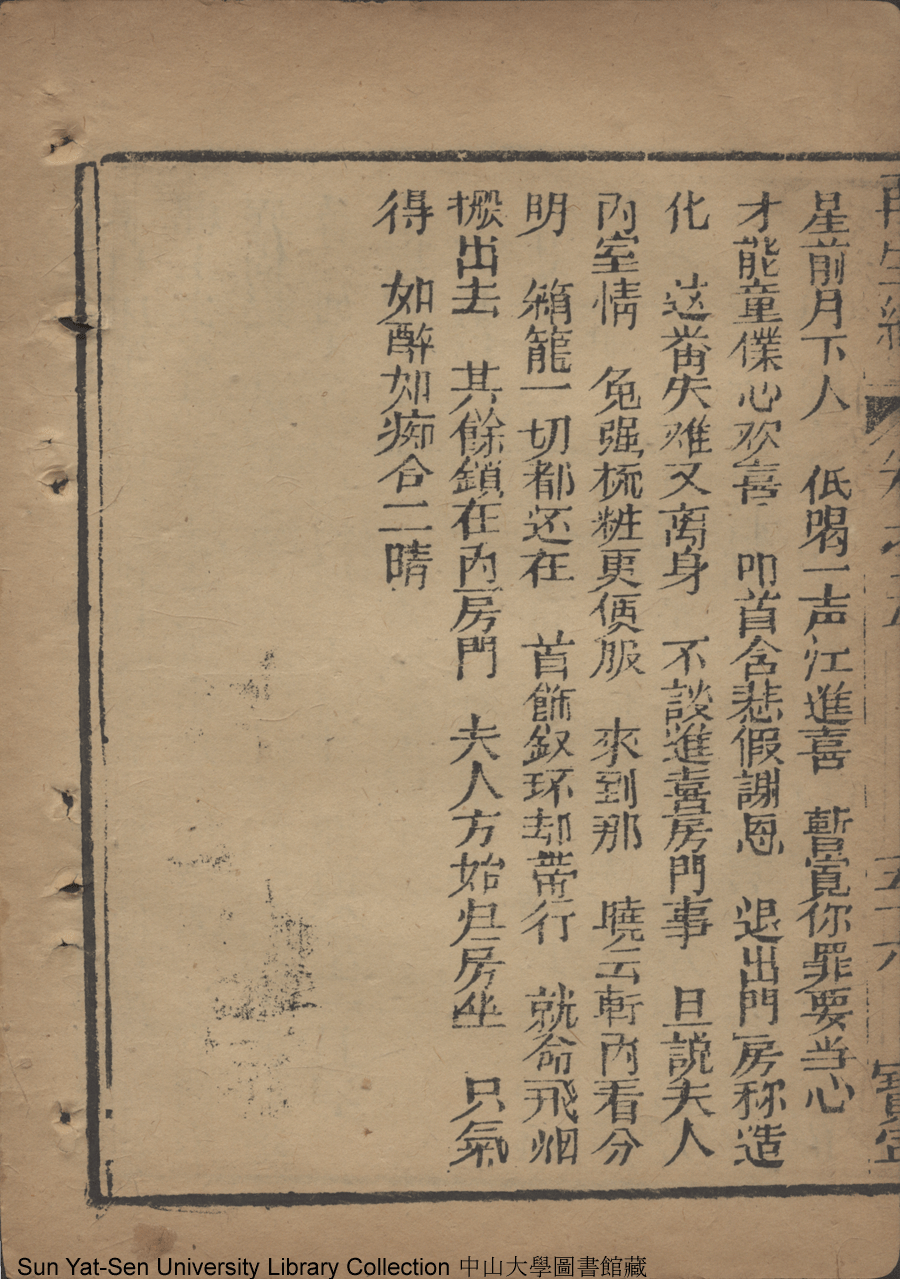 再生緣 卷之五 五十八 寶寧
星前月下人 低喝一声江進喜 暫寬你罪要当心
才能童僕心欢喜 叩首含悲假謝恩 退出門房称造
化 这畨失难又离身 不談進喜房門事 旦説夫人
內室情 免强梳粧更便服 來到那 曉云軒內看分
明 箱籠一切都还在 首飾釵环却帶行 就命飛烟
搬出去 其餘鎖在內房門 夫人方始归房坐 只氣
得 如醉如痴合二睛
Sun Yat-Sen University Library Collection 中山大學圖書館藏